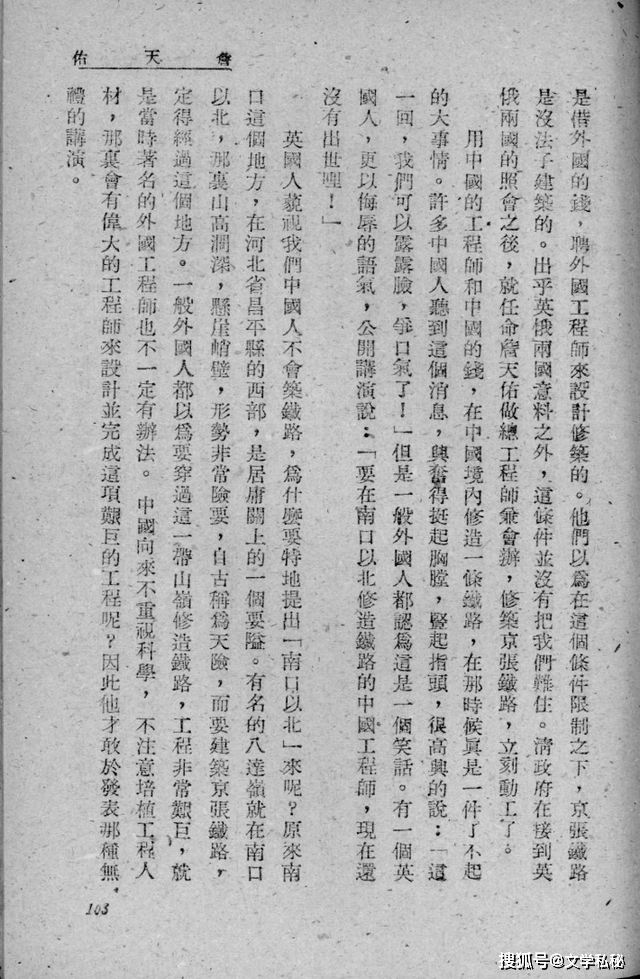 詹天佑
是借外國的錢，聘外國工程師來設計修築的。他們以爲在這個條件限制之下，京張鐵路
是沒法子建築的。出乎英俄兩國意料之外，這條件並沒有把我們難住。淸政府在接到英
俄兩國的照會之後，就任命詹天佑做總工程師兼會辦，修築京張鐵路，立刻動工了。
用中國的工程師和中國的錢，在中國境內修造一條鐵路，在那時候眞是一件了不起
的大事情。許多中國人聽到這個消息，興奮得挺起胸膛，豎起指頭，很高興的說：「這
一回，我們可以露露臉，爭口氣了！」但是一般外國人都認爲這是一個笑話。有一個英
國人，更以侮辱的語氣，公開講演說：「要在南口以北修造鐵路的中國工程師，現在還
沒有出世哩！」
英國人藐視我們中國人不會築鐵路，爲什麽要特地提出「南口以北」來呢？原來南
口這個地方，在河北省昌平縣的西部，是居庸關上的一個要隘。有名的八達嶺就在南口
以北，那裏山高澗深，懸崖峭壁，形勢非常險要，自古稱爲天險，而要建築京張鐵路，
定得經過這個地方。一般外國人都以爲要穿過這一帶山嶺修造鐵路，工程非常艱巨，就
是當時著名的外國工程師也不一定有辦法。中國向來不重視科學，不注意培植工程人
材，那裏會有偉大的工程師來設計並完成這項艱巨的工程呢？因此他才敢於發表那種無
禮的講演。
103
搜狐号@文学私秘